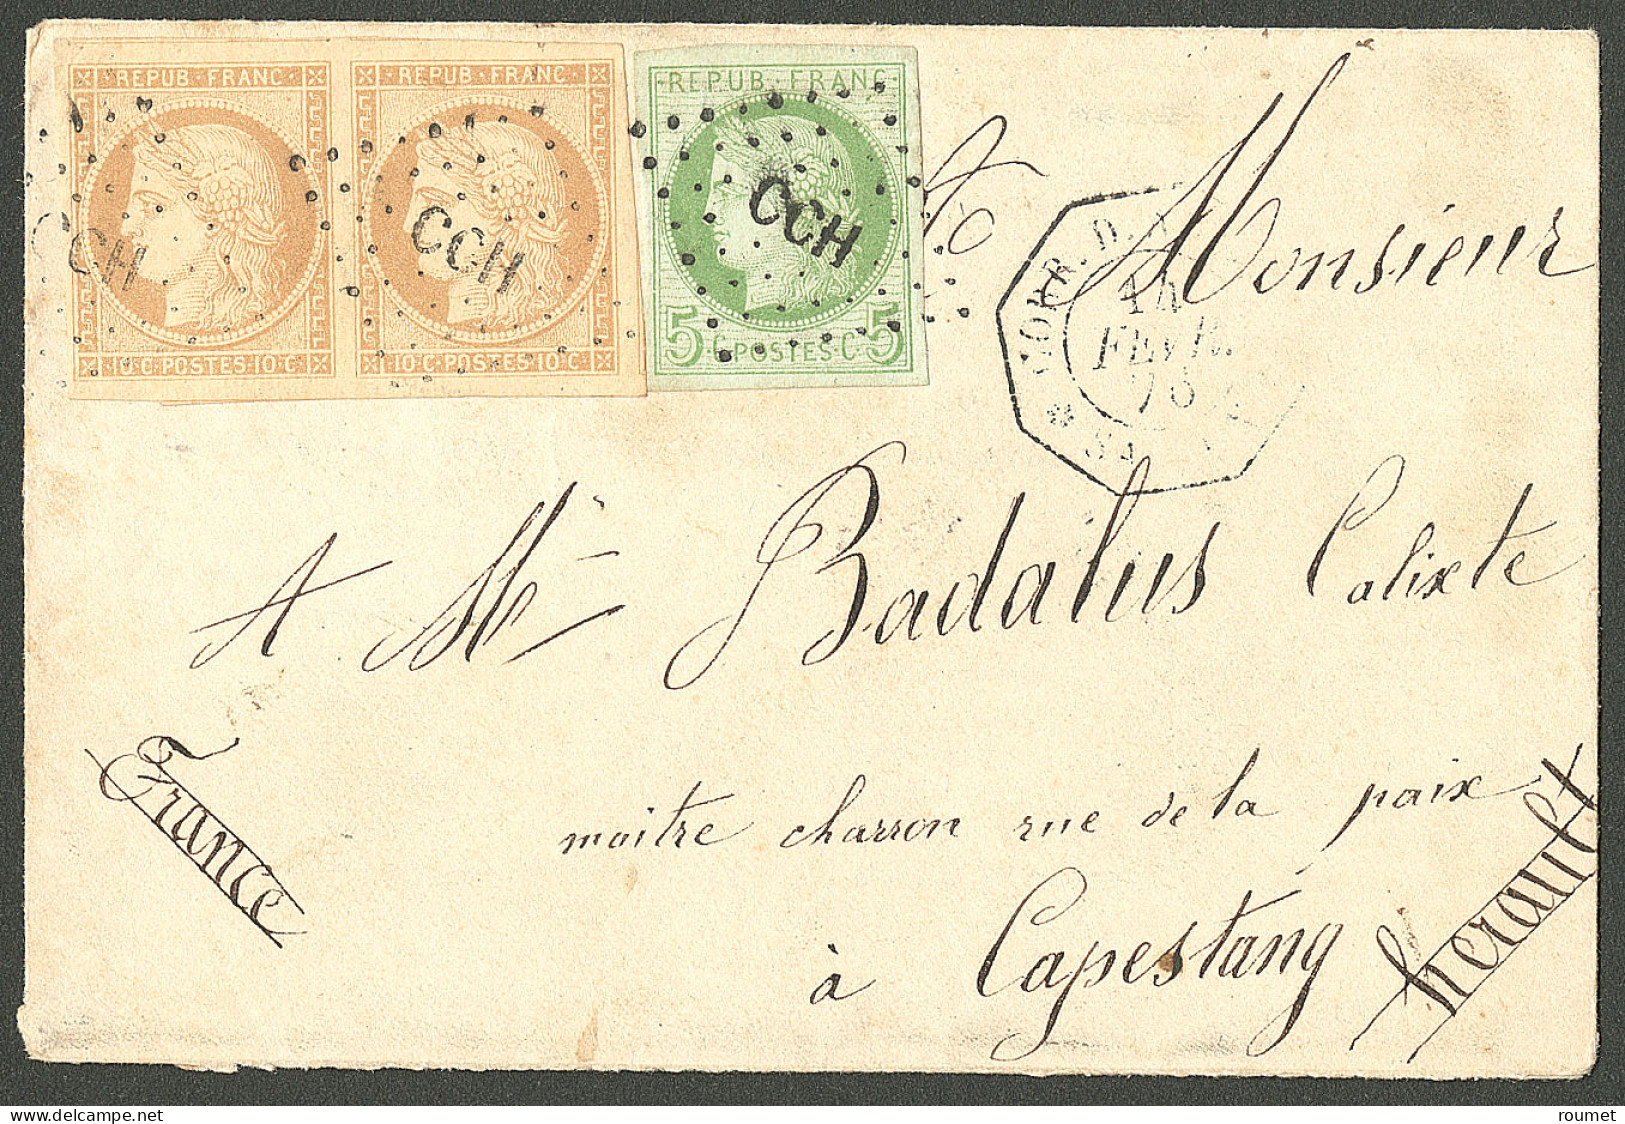 REPUB·FRANC
REPUB·FRANC
REPUB·FRANC
CCH
CCH
CCH
10·C·POSTES·10·C
10·C·POSTES·10·C
5·C·POSTES·C·5
CORR.D.
14
FEVR.
76
A Monsieur
A Mr Badalus Calixte
France
maitre charron rue de la paix
à Capestang
herault
delcampe.net
roumet